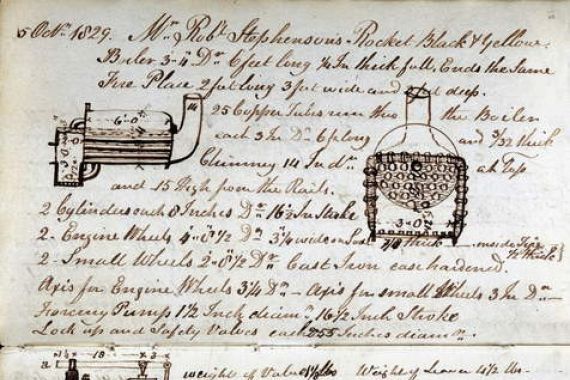 5 Octr. 1829. Mr. Robt. Stephenson's Rocket Black & Yellow.
Boiler 3-4 Dr 6 feet long ¼ In thick full, Ends the Same
Fire Place 2 feet long 3 feet wide and deep.
25 Copper Tubes run thro the Boiler
each 3 In Dr 6 f long and 3/32 thick
Chimney 14 In dr. at top
and 15 High from the Rails.
2 Cylinders each 8 Inches Dr 16½ In Stroke
2- Engine Wheels 4"-8½ Dr 3¾ wide on
2- Small Wheels 2"-8½ Dr Cast Iron case hardened.
Axis for Engine Wheels 3¼ Dr - Axis for small Wheels 3 In Dr -
Forcing Pump 1½ Inch diamr. 16½ Inch Stroke
Lock up and Safety Valves each 2.55 Inches diamr.
6-0
14
3-0
thick inside
½ thick
1½ 18
weight of Valve 1½ lbs Weight of Leaver 4½ lbs-